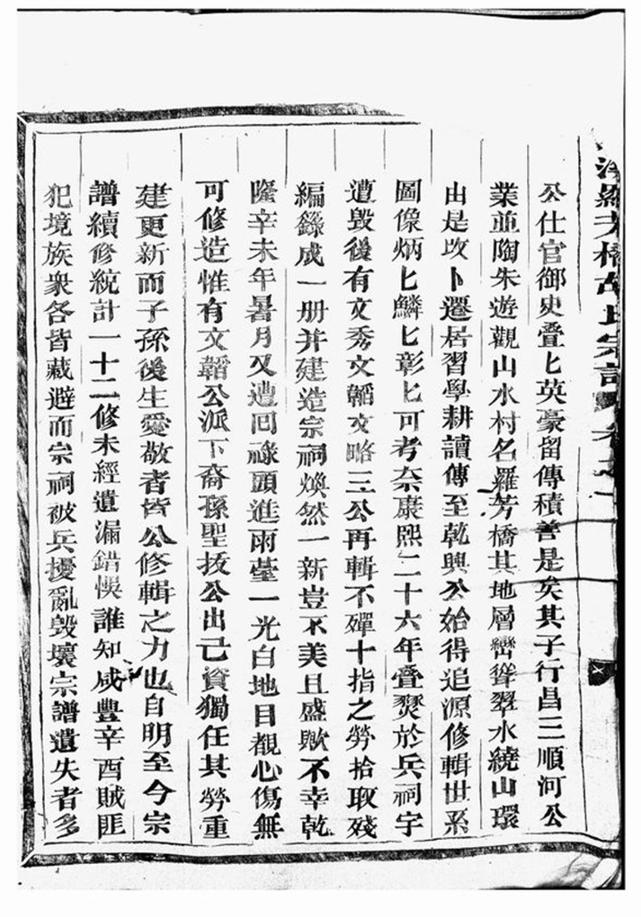 羅芳橋胡氏宗譜 卷之一
公仕官御史疊匕英豪留傳積善是矣其子行昌三順河公
業並陶朱遊觀山水村名羅芳橋其地層巒聳翠水繞山環
由是攺卜遷居習學耕讀傳至乾興公始得追源修輯世系
圖像炳匕鱗匕彰匕可考奈康熙二十六年疊燹於兵祠宇
遭毀後有文秀文韜文略三公再輯不殫十指之勞拾取殘
編錄成一册并建造宗祠煥然一新豈不美且盛歟不幸乾
隆辛未年暑月又遭囘祿頭進兩䓯一光白地目覩心傷無
可修造惟有文韜公派下裔孫聖拔公出己資獨任其勞重
建更新而子孫後生愛敬者皆公修輯之力也自明至今宗
譜續修統計一十二修未經遺漏錯悞誰知咸豐辛酉賊匪
犯境族衆各皆藏避而宗祠被兵擾亂毀壞宗譜遺失者多